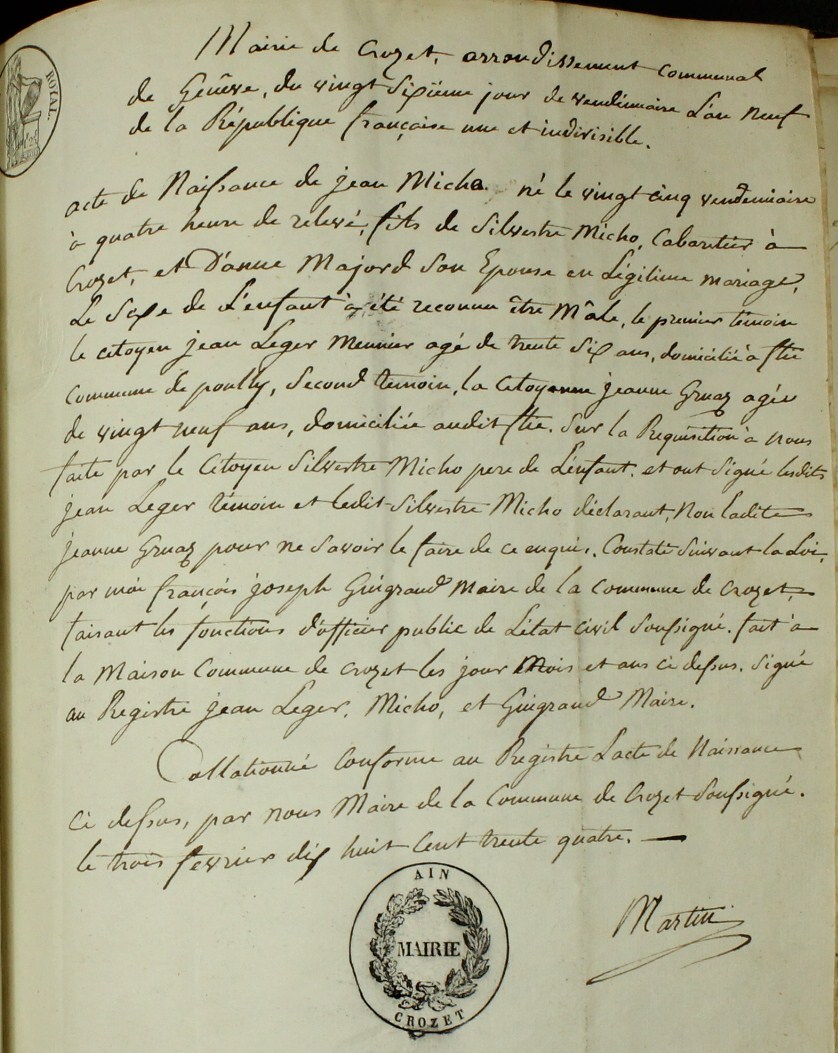 ROYAL.
Mairie de Crozet, arrondissement Communal
de Genève, du vingt sixième jour de vendémiaire L'an neuf
de la République française une et indivisible.
acte de Naissance de jean Micho né le vingt cinq vendémiaire
à quatre heure de relevé, fils de Silvestre Micho, Cabaretier à
Crozet, et D'anne Majord Son Epouse en Légitime mariage,
Le Sexe de L'enfant à été reconnu être Mâle, le premier témoin
le citoyen jean Leger Meunier agé de trente Six ans, domicilié à
Commune de pouilly, Second témoin, la Citoyenne jeanne Gruaz agée
de vingt neuf ans, domiciliée audit. Sur la Requisition à nous
faite par le Citoyen Silvestre Micho pere de L'enfant. et ont Signé lesdits
jean Leger témoin et ledit Silvestre Micho déclarant, Non ladite
jeanne Gruaz pour ne Savoir le faire de ce enquis. Constaté Suivant la Loi,
par moi françois joseph Guigrand Maire de la Commune de Crozet,
faisant les fonctions d'officier public de L'état Civil Soussigné. fait à
la Maison Commune de Crozet les jour Mois et ans ci dessus. Signé
au Registre jean Leger, Micho, et Guigrand Maire.
Collationné Conforme au Registre L'acte de Naissance
Ci dessus, par nous Maire de la Commune de Crozet Soussigné.
le trois fevrier dix huit Cent trente quatre. —
Martin
AIN
MAIRIE
CROZET